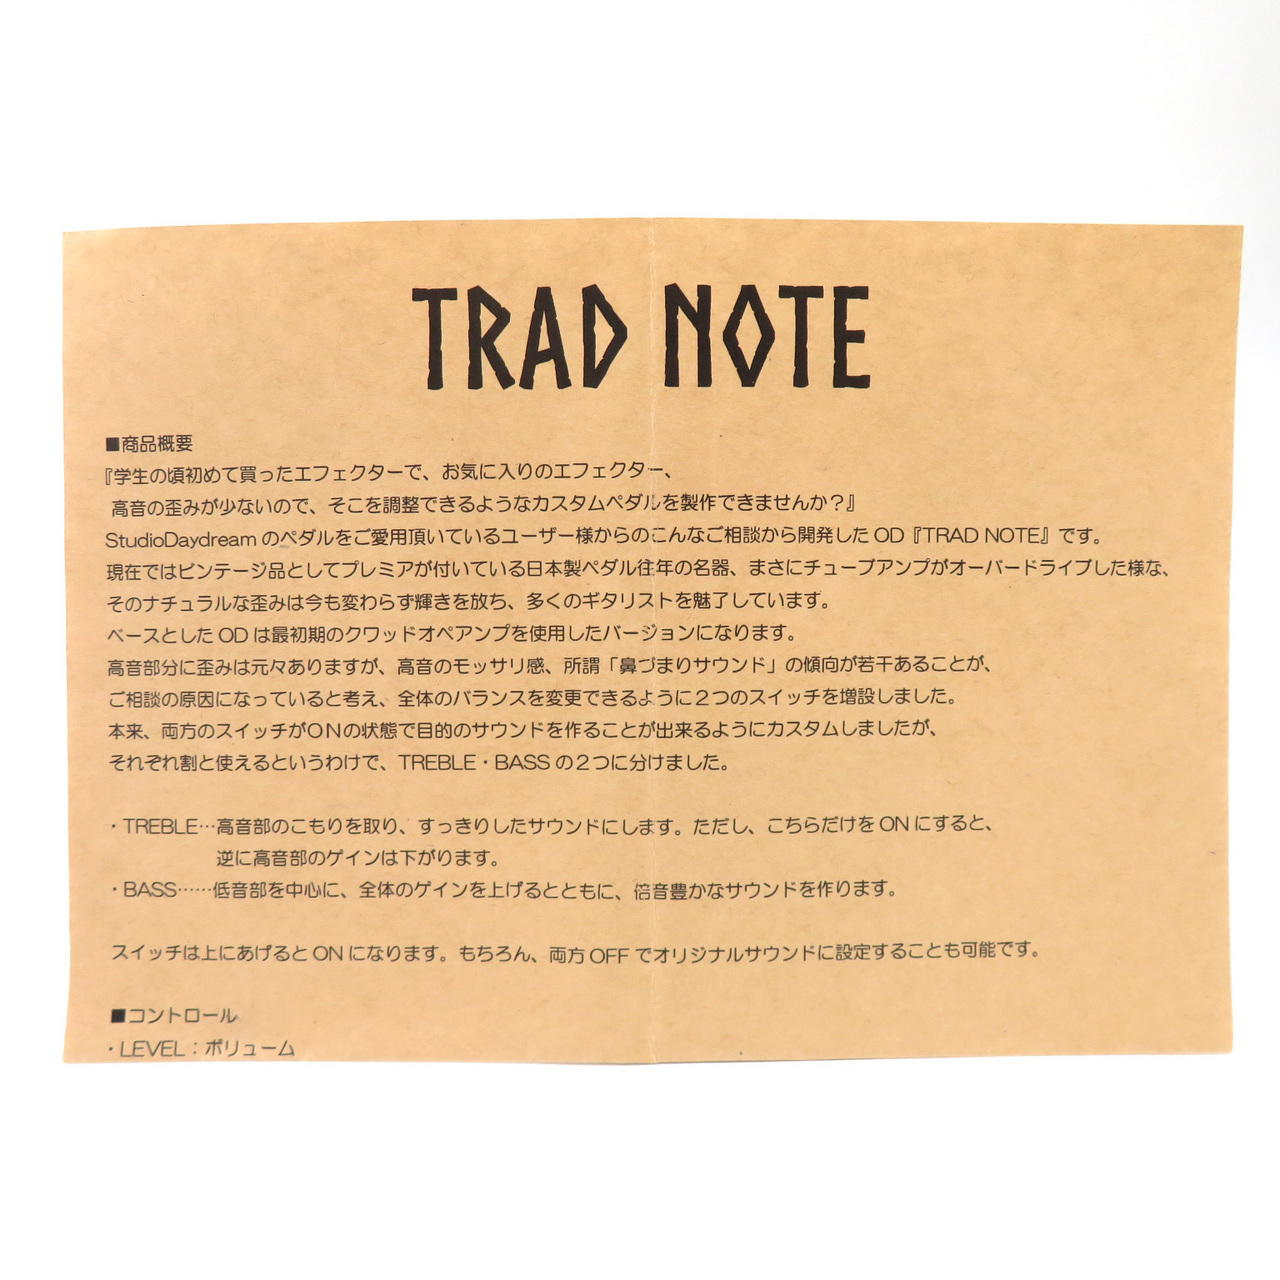 TRAD NOTE
■商品概要
『学生の頃初めて買ったエフェクターで、お気に入りのエフェクター、
高音の歪みが少ないので、そこを調整できるようなカスタムペダルを製作できませんか？』
StudioDaydream のペダルをご愛用頂いているユーザー様からのこんなご相談から開発した OD『TRAD NOTE』です。
現在ではビンテージ品としてプレミアが付いている日本製ペダル往年の名器、まさにチューブアンプがオーバードライブした様な、
そのナチュラルな歪みは今も変わらず輝きを放ち、多くのギタリストを魅了しています。
ベースとした OD は最初期のクワッドオペアンプを使用したバージョンになります。
高音部分に歪みは元々ありますが、高音のモッサリ感、所謂「鼻づまりサウンド」の傾向が若干あることが、
ご相談の原因になっていると考え、全体のバランスを変更できるように２つのスイッチを増設しました。
本来、両方のスイッチがＯＮの状態で目的のサウンドを作ることが出来るようにカスタムしましたが、
それぞれ割と使えるというわけで、TREBLE・BASS の２つに分けました。
・TREBLE…高音部のこもりを取り、すっきりしたサウンドにします。ただし、こちらだけを ON にすると、
逆に高音部のゲインは下がります。
・BASS……低音部を中心に、全体のゲインを上げるとともに、倍音豊かなサウンドを作ります。
スイッチは上にあげると ON になります。もちろん、両方 OFF でオリジナルサウンドに設定することも可能です。
■コントロール
・LEVEL：ボリューム